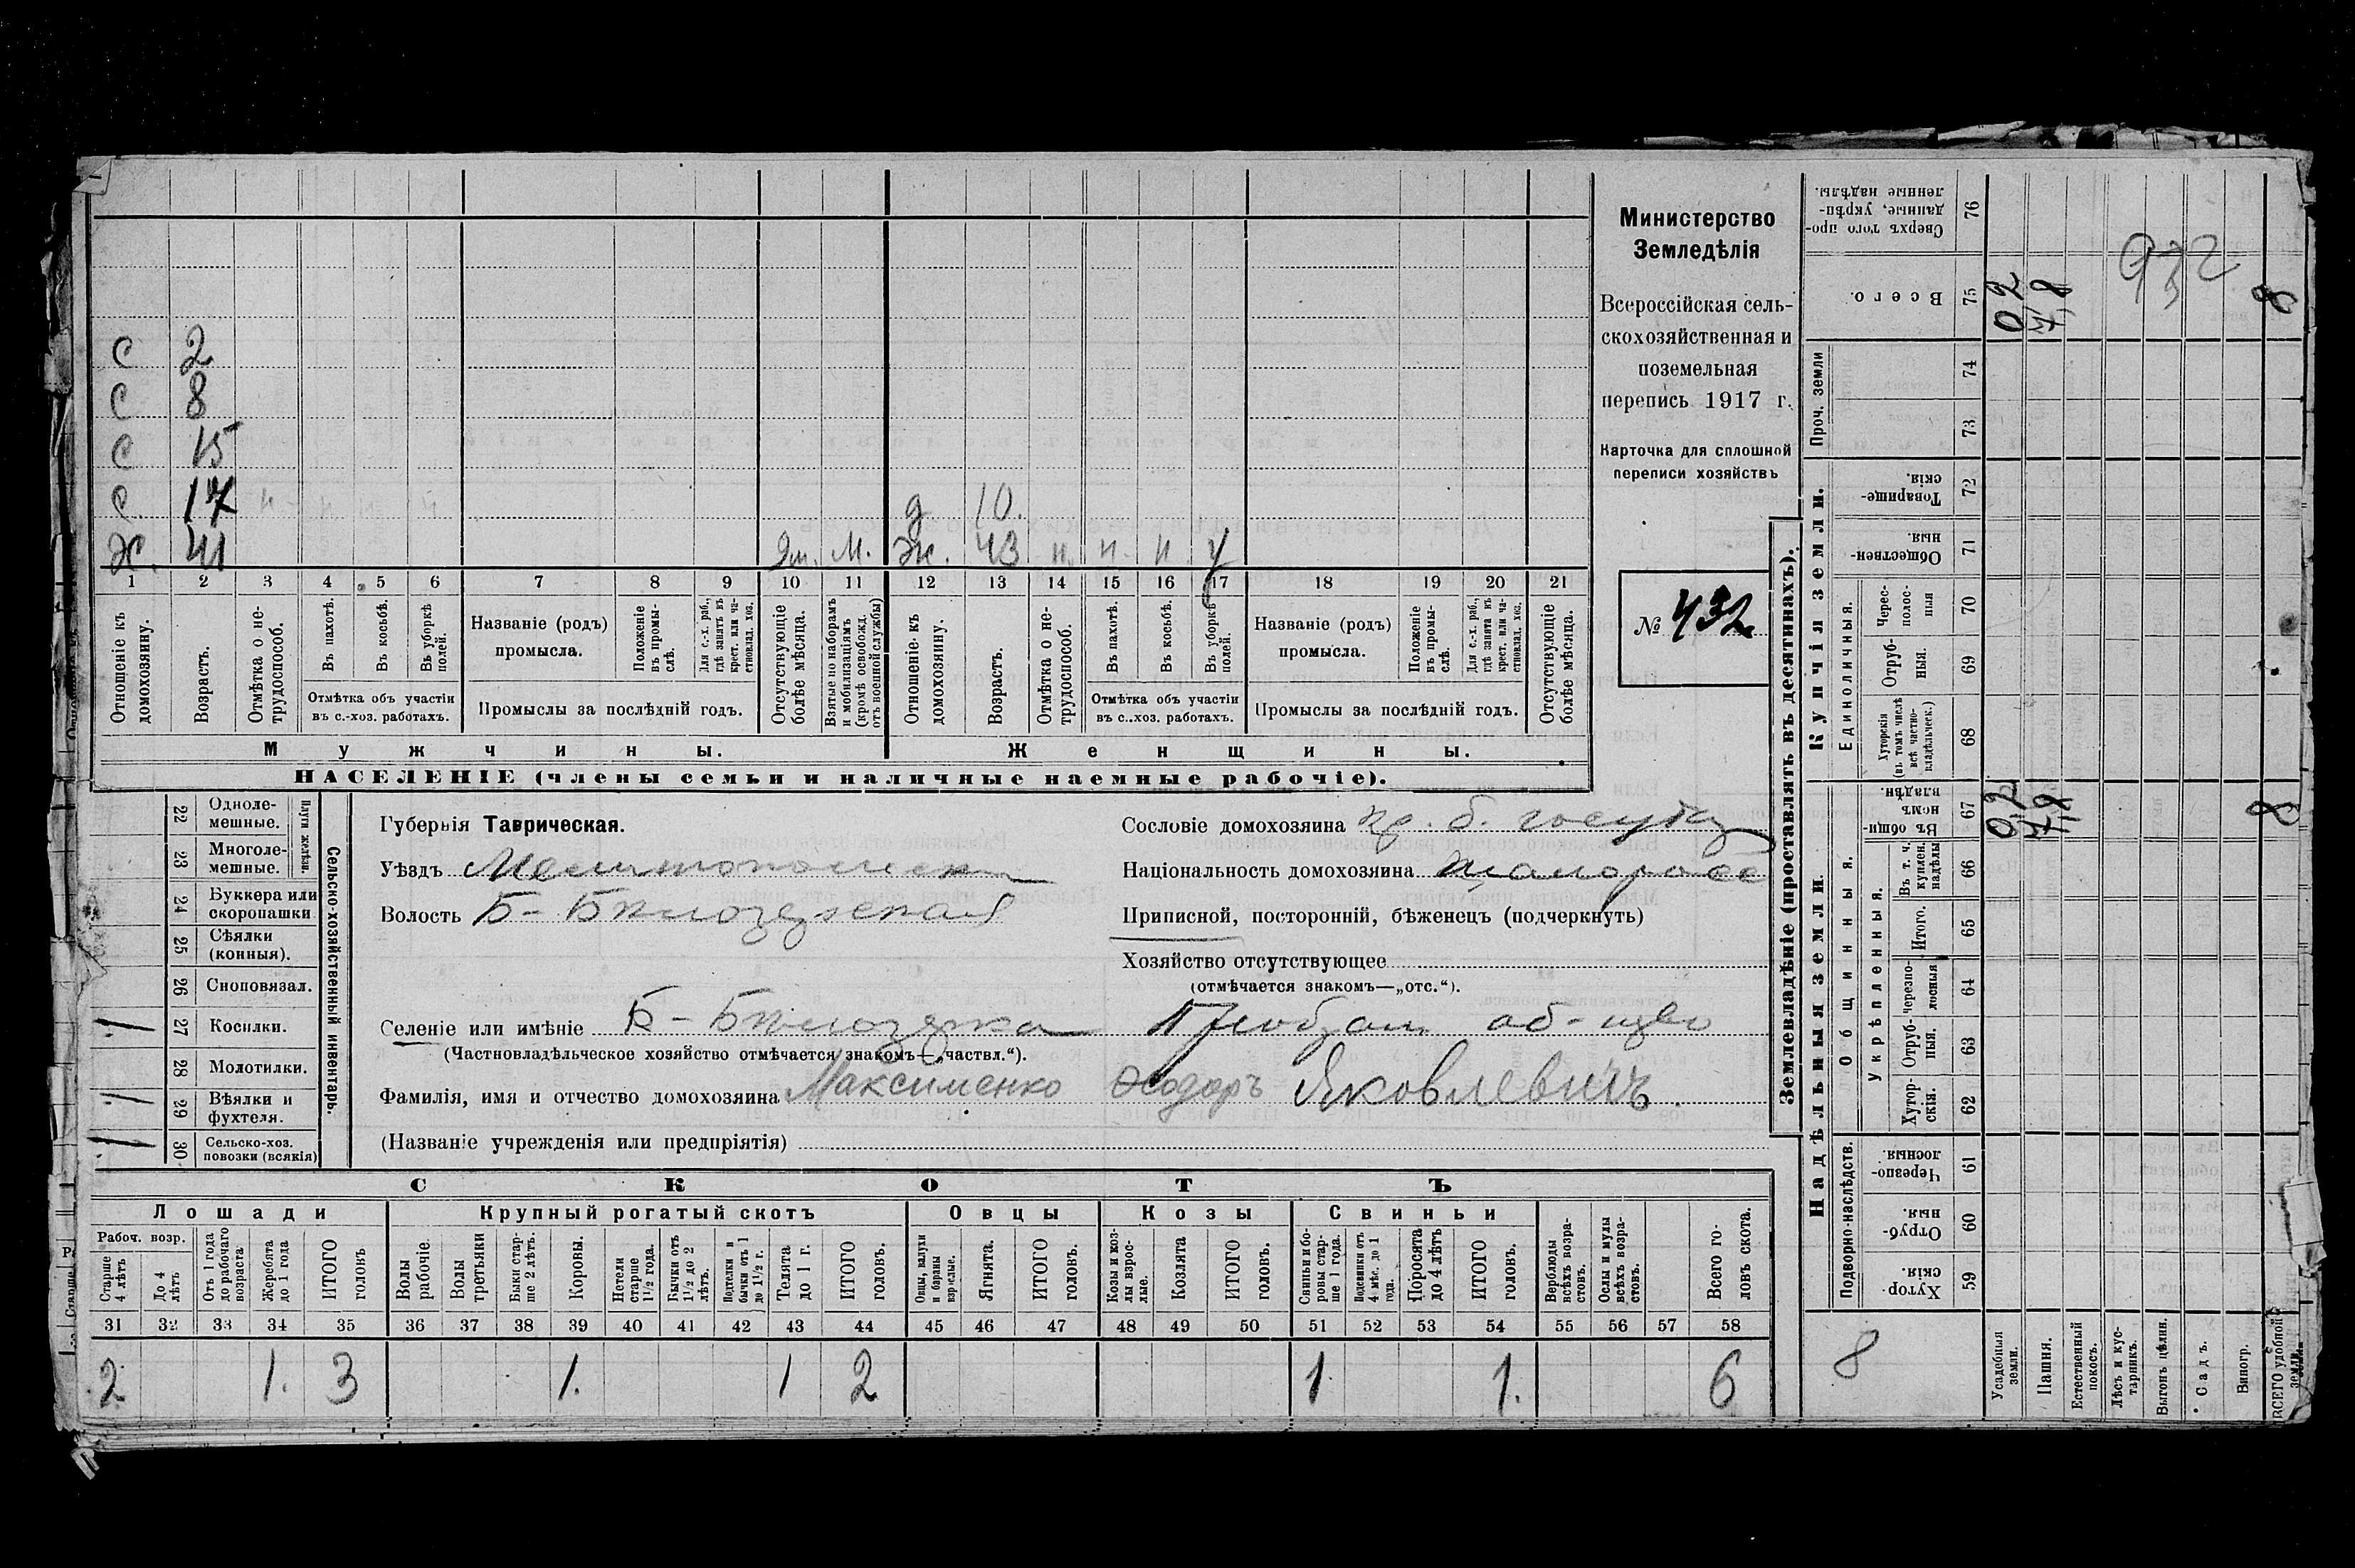 С 2
С 8
С 15
С. 17 н н н н д 10.
Х. 41 Ям. М. Ж. 43 н. н н у
1 2 3 4 5 6 7 8 9 10 11 12 13 14 15 16 17 18 19 20 21
Отношеніе къ домохозяину.
Возрастъ.
Отмѣтка о нетрудоспособ.
Въ пахотѣ.
Въ косьбѣ.
Въ уборкѣ полей.
Отмѣтка объ участіи
въ с.-хоз. работахъ.
Названіе (родъ)
промысла.
Положеніе въ промыслѣ.
Для с.-х. раб., гдѣ занятъ въ крест. или частновлад. хоз.
Промыслы за послѣдній годъ.
Отсутствующіе болѣе мѣсяца.
Взятые по наборамъ и мобилизаціямъ (кромѣ освобожд. отъ военной службы)
Отношеніе къ домохозяину.
Возрастъ.
Отмѣтка о нетрудоспособ.
Въ пахотѣ.
Въ косьбѣ.
Въ уборкѣ полей.
Отмѣтка объ участіи
въ с.-хоз. работахъ.
Названіе (родъ)
промысла.
Положеніе въ промыслѣ.
Для с.-х. раб., гдѣ занята въ крест. или частновлад. хоз.
Промыслы за послѣдній годъ.
Отсутствующіе болѣе мѣсяца.
Мужчины. Женщины.
НАСЕЛЕНІЕ (члены семьи и наличные наемные рабочіе).
Министерство
Земледѣлія
Всероссійская сель-
скохозяйственная и
поземельная
перепись 1917 г.
Карточка для сплошной
переписи хозяйствъ
№ 432
22 Одноле-
мешные.
23 Многоле-
мешные.
Плуги желѣзн.
24 Буккера или
скоропашки
25 Сѣялки
(конныя).
26 Сноповязал.
1 27 Косилки.
28 Молотилки.
1 29 Вѣялки и
фухтеля.
1 30 Сельско-хоз.
повозки (всякія)
Сельско-хозяйственный инвентарь.
Губернія Таврическая.
Уѣздъ Мелитопольск
Волость Б-Бѣлозерская
Сословіе домохозяина кр. б. госуд
Національность домохозяина малоросс
Приписной, посторонній, бѣженецъ (подчеркнуть)
Хозяйство отсутствующее
(отмѣчается знакомъ—„отс.“).
Селеніе или имѣніе Б-Бѣлозерка об-щво
(Частновладѣльческое хозяйство отмѣчается знакомъ—„частвл.“).
Фамилія, имя и отчество домохозяина Максименко Ѳеодоръ Яковлевичъ.
(Названіе учрежденія или предпріятія)
СКОТЪ
Лошади Крупный рогатый скотъ Овцы Козы Свиньи
Рабоч. возр.
Старше 4 лѣтъ
До 4 лѣтъ
Отъ 1 года до рабочаго возраста
Жеребята до 1 года
ИТОГО головъ
Волы рабочіе.
Волы третьяки
Быки старше 2 лѣтъ.
Коровы.
Нетели старше 1½ года.
Бычки отъ 1½ до 2 лѣтъ.
Подтелки и бычки отъ 1 до 1½ г.
Телята до 1 г.
ИТОГО головъ.
Овцы, валухи и бараны взрослые.
Ягнята.
ИТОГО головъ.
Козы и козлы взрослые.
Козлята
ИТОГО головъ.
Свиньи и боровы старше 1 года.
Подсвинки отъ 4 мѣс. до 1 года.
Поросята до 4 лѣтъ
ИТОГО головъ.
Верблюды всѣхъ возрастовъ.
Ослы и мулы всѣхъ возрастовъ.
Всего головъ скота.
31 32 33 34 35 36 37 38 39 40 41 42 43 44 45 46 47 48 49 50 51 52 53 54 55 56 57 58
2 1. 3 1. 1 2 1 1. 6
Землевладѣніе (проставлять въ десятинахъ).
Надѣльныя земли.
Купчія земли.
Проч. земли
Сверхъ того проданные, укрѣпленные надѣлы. 76
Всего. 75 0,2 7,8 8
932
74
73
Товарищескія. 72
Общественныя. 71
Единоличныя.
Чересполосныя 70
Отрубныя. 69
Хуторскія (въ томъ числѣ всѣ частновладѣльческ.) 68
Общинныя.
Въ общинномъ владѣн. 67 0,2 7,8 8
Укрѣпленныя.
Въ т. ч. куплен. надѣлы 66
Итого. 65
Черезполосныя 64
Отрубныя. 63
Хуторскія. 62
Подворно-наслѣдств.
Черезполосныя. 61
Отрубныя. 60
Хуторскія. 59
8
Усадебныя земли.
Пашня.
Естественный покосъ.
Лѣсъ и кустарникъ.
Выгонъ цѣлин.
Садъ.
Виногр.
ВСЕГО удобной земли.